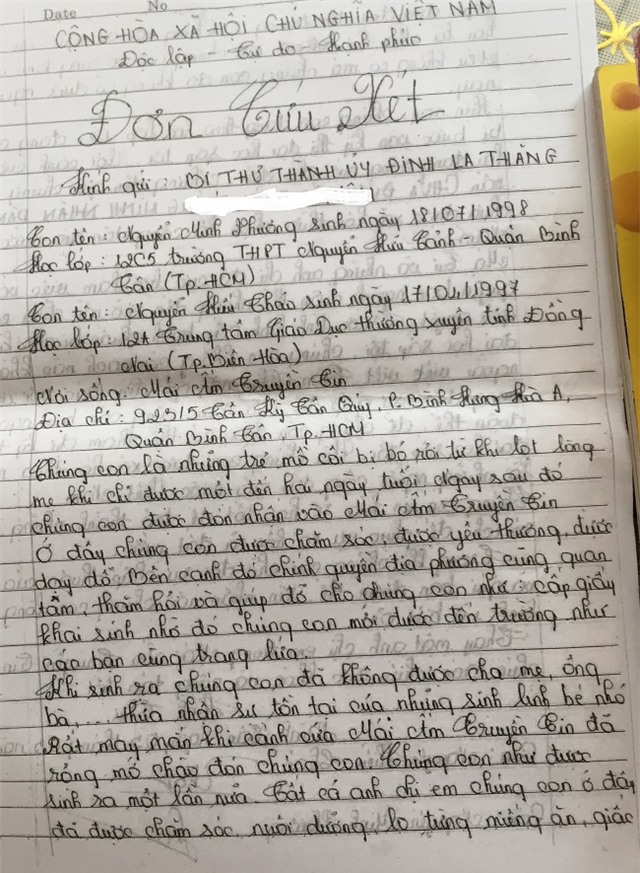 Date No
CỘNG HÒA XÃ HỘI CHỦ NGHĨA VIỆT NAM
Độc lập - Tự do - Hạnh phúc
Đơn Cứu Xét
Kính gửi : BÍ THƯ THÀNH ỦY ĐINH LA THĂNG
Con tên : Nguyễn Minh Phương sinh ngày 18/07/1998
Học lớp : 12C5 trường THPT Nguyễn Hữu Cảnh - Quận Bình
Tân (Tp.HCM)
Con tên : Nguyễn Hữu Chán sinh ngày 17/04/1997
Học lớp : 12A Trung tâm Giáo Dục thường xuyên tỉnh Đồng
Nai (Tp.Biên Hòa)
Nơi sống : Mái Ấm Truyền Tin
Địa chỉ : 923/5 Tân Kỳ Tân Qúy, P. Bình Hưng Hòa A,
Quận Bình Tân, Tp. HCM
Chúng con là những trẻ mồ côi bị bỏ rơi từ khi lọt lòng
mẹ khi chỉ được một đến hai ngày tuổi Ngay sau đó
chúng con được đón nhận vào Mái Ấm Truyền Tin
Ở đây chúng con được chăm sóc, được yêu thương, được
dạy dỗ Bên cạnh đó chính quyền địa phương cũng quan
tâm, thăm hỏi và giúp đỡ cho chúng con như : cấp giấy
khai sinh nhờ đó chúng con mới được đến trường như
các bạn cùng trang lứa.
Khi sinh ra chúng con đã không được cha mẹ, ông
bà, ... thừa nhận sự tồn tại của những sinh linh bé nhỏ
Rất may mắn khi cánh cửa Mái Ấm Truyền Tin đã
rộng mở chào đón chúng con. Chúng con như được
sinh ra một lần nữa. Tất cả anh chị em chúng con ở đây
đã được chăm sóc, nuôi dưỡng, lo từng miếng ăn, giấc